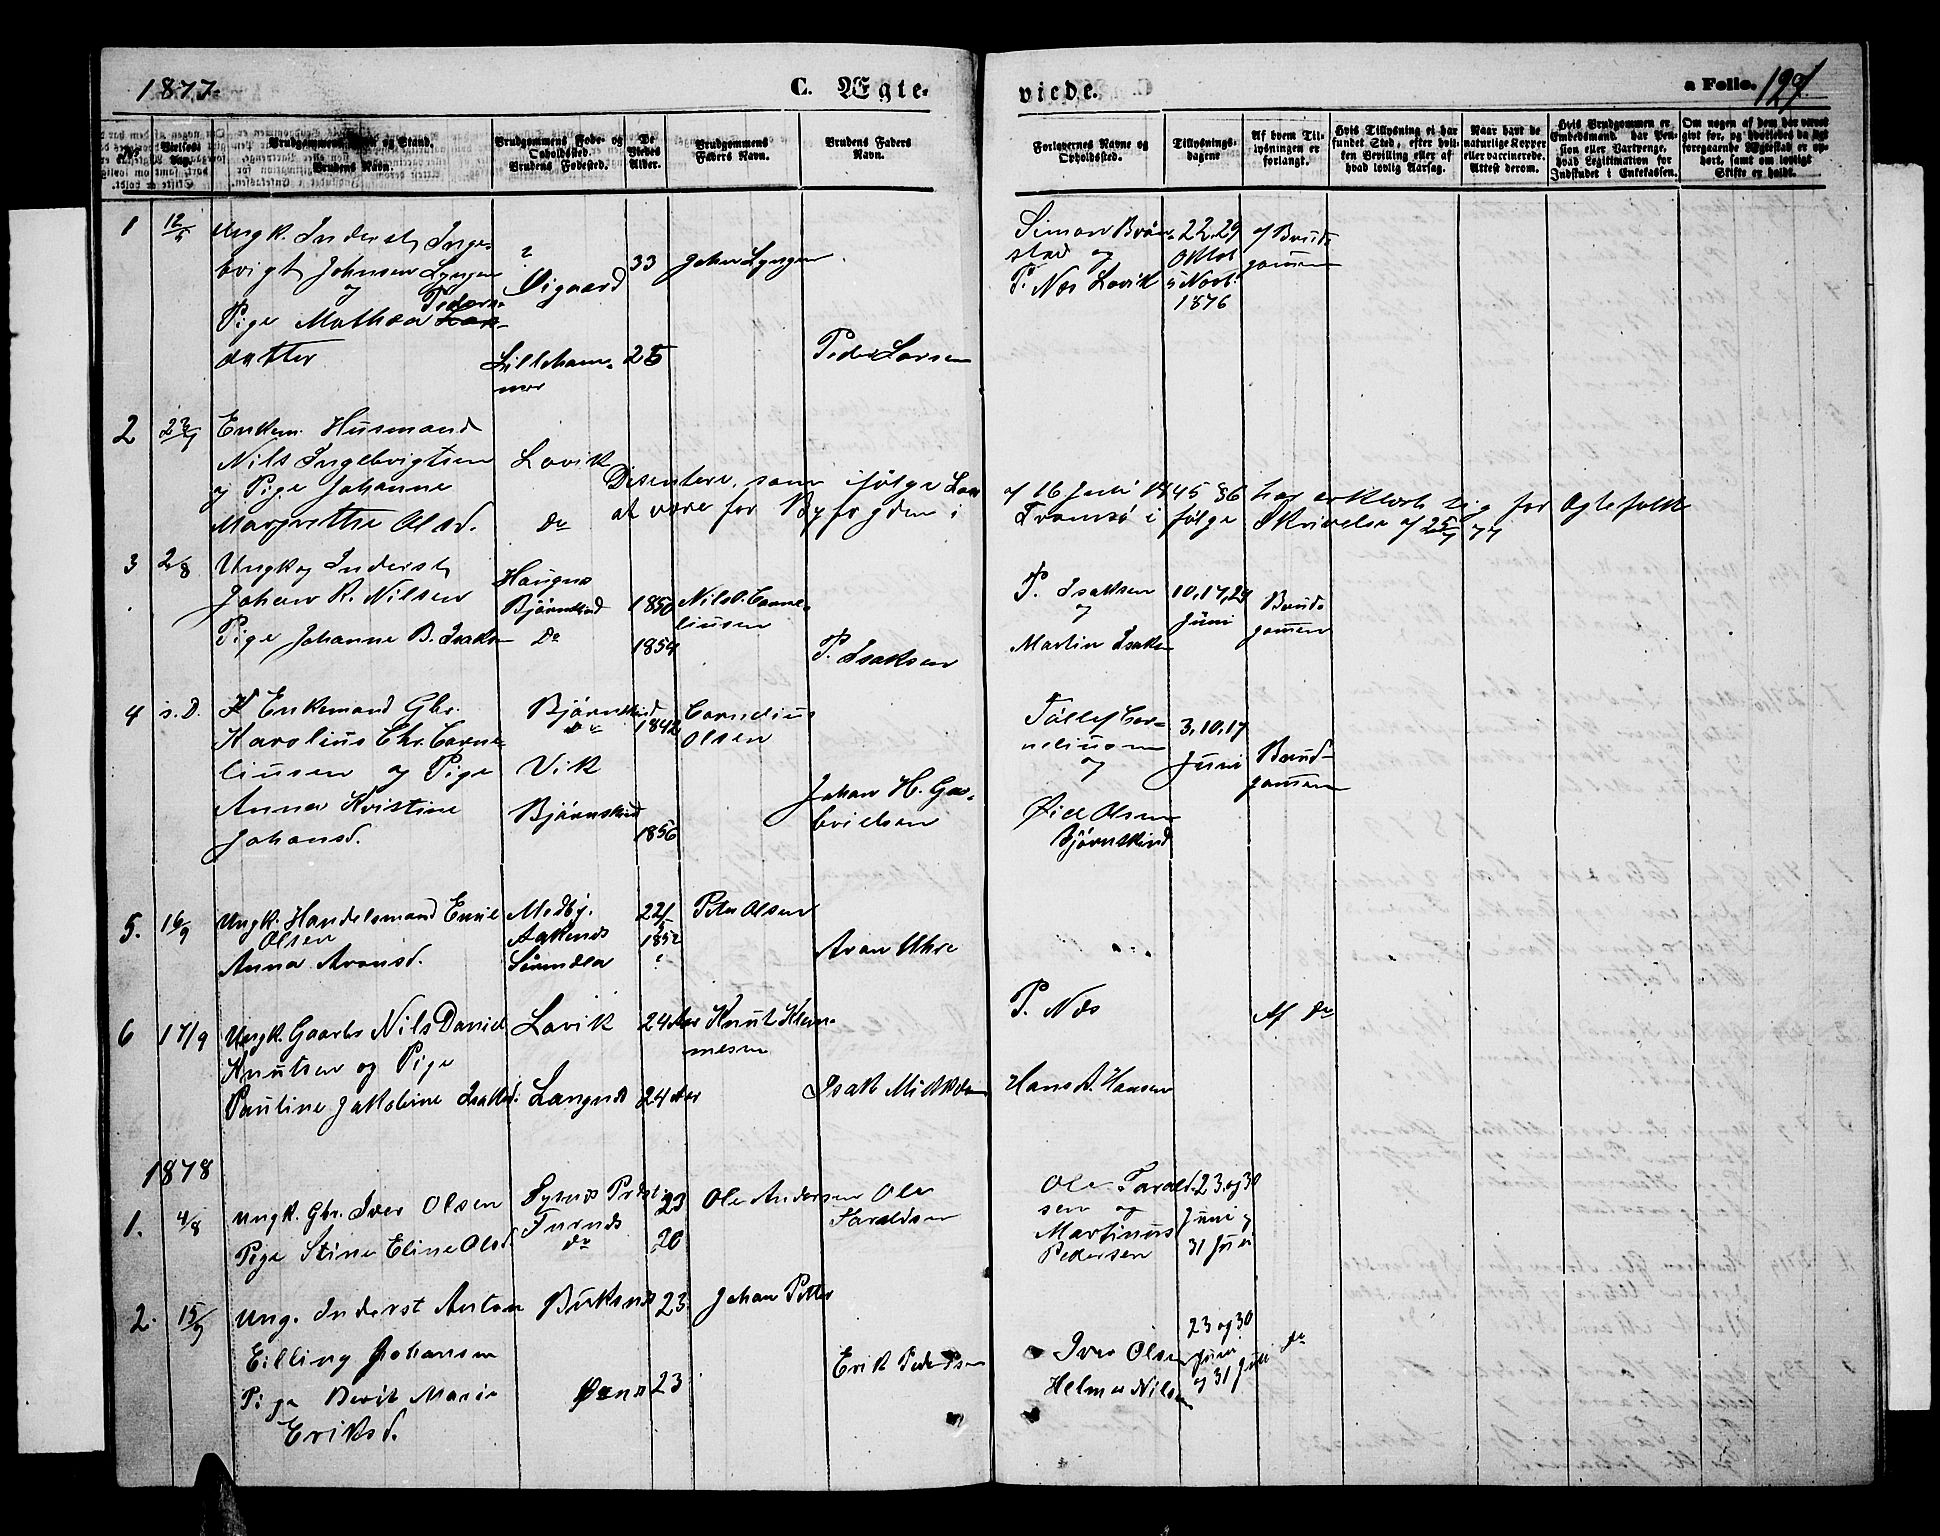 1877.
C. Ægte-
viede.
a Folio. 129
No.
Vielses-
Dag.
Brudgommens Navn og Stand.
Brudens Navn.
Brudgommens Føde- og
Opholdssted.
Brudens Fødested.
De
Viedes
Alder.
Brudgommens
Faders Navn.
Brudens Faders
Navn.
Forlovernes Navne og
Opholdssted.
Tillysnings-
dagene
Af hvem Til-
lysningen er
forlangt.
Hvis Tillysning ei har
fundet Sted, efter hvil-
ken Bevilling eller af
hvad lovlig Aarsag.
Naar havt de
naturlige Kopper
eller vaccinerede.
Attest derom.
Hvis Brudgommen er
Embedsmand har Pen-
sion eller Vartpenge,
hvad Legitimation for
Indskudet i Enkekassen.
Om nogen af dem har været
gift før, og hvorledes da det
foregaaende Ægteskab er op-
hørt, samt om lovligt
Skifte er holdt.
1
Ungk. Inderst, Inge-
brigt Johnsen Lyngen
og
Pige Mathea Peders-
datter
?
Øigaard
Lilleham-
mer
33
25
Johan Lyngen
Peder Larsen
Simon Brøn-
stad og
P. Næs Lavik
22, 29
Oktob
5 Novb.
1876
af Brud-
gommen
2
Enkem. Husmand
Nils Ingebrigtsen
og Pige Johanne
Margrethe Olsd.
Lavik
Do
Disentere, som ifølge Lov af 16 Juli 1845 § 6 har erklæret sig for Ægtefolk
at være for Byfogden i Tromsø i følge Skrivelse af 25/7 77
3
2/8
Ungk og Inderst,
Johan R. Nilsen
Pige Johanne B. Isaks
Haugnes
Bjørnskind
Do
1850
1854
Nils C. Corne-
liusen
P. Isaksen
P. Isaksen
og
Martin Isaks
10, 17, 24
Juni
Brud-
gommen
4
s. D.
Enkemand Gbr.
Karolius Chr. Corne-
liusen og Pige
Anna Kristine
Johansd.
Bjørnskind
Do
Vik
Bjørnskind
1842
1856
Cornelius
Olsen
Johan H. Ga-
brielsen
Tollef Cor-
neliusen
og
Øiel Olsen
Bjørnskind
3, 10, 17
Juni
Brud-
gommen
5.
16/9
Ungk. Handelsmand Enie
Olsen
Anna Aronsd.
Medby.
Aaknes
Sørindea
22/
1852
?
Peter Olsen
Aron Uhre
6
17/9
Ungk. Gaarbr. Nils Daniel
Knutsen og Pige
Pauline Jakobine Isaksd.
Lavik
Langnes
24 Aar
24 Aar
Knut Klem-
mesen
Isak Mikkelsen
P. Næs
Hans A. Hansen
Af do
1878
1.
4/8
Ungk. Gbr. Iver Olsen
Pige Stine Eline Olsd.
Furnes
do
23
20
Ole Andersen
Ole
Taraldsen
Ole Tarald-
sen og
Martinus
Pedersen
23 og 30
Juni og
31 Juli
2.
15/9
Ung. Inderst Anton
Eilling Johansen
Pige Berit Marie
Eriksd.
Buksnes
Øxnes
23
23
Johan Petter
Erik Pedersen
Iver Olsen
Helmer Nilsen
23 og 30
Juni
og 31 Juli
do